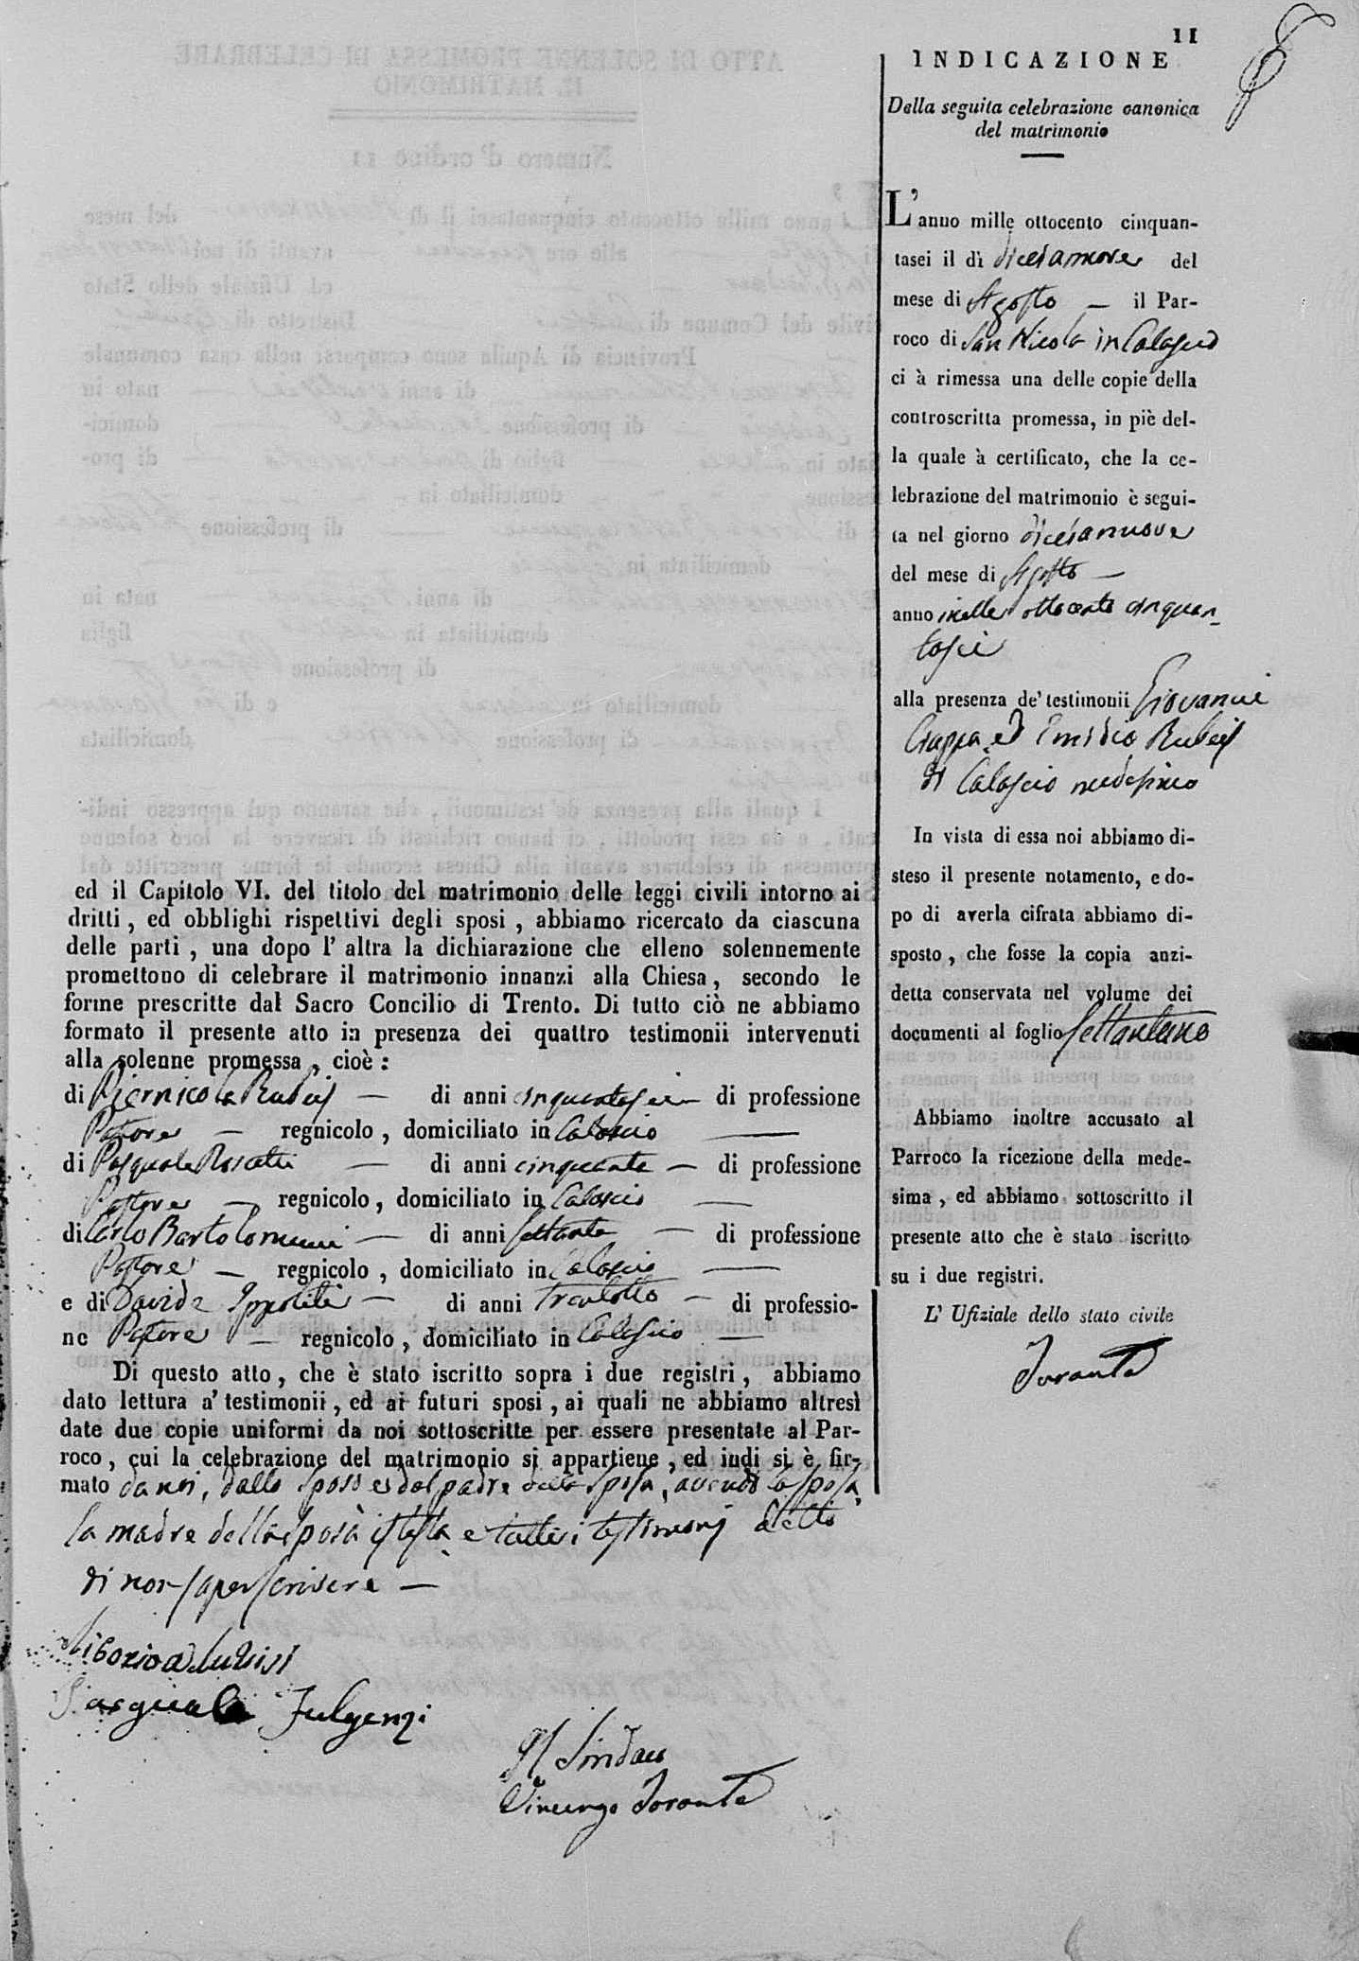 ed il Capitolo VI. del titolo del matrimonio delle leggi civili intorno ai
dritti, ed obblighi rispettivi degli sposi, abbiamo ricercato da ciascuna
delle parti, una dopo l'altra la dichiarazione che elleno solennemente
promettono di celebrare il matrimonio innanzi alla Chiesa, secondo le
forme prescritte dal Sacro Concilio di Trento. Di tutto ciò ne abbiamo
formato il presente atto in presenza dei quattro testimonii intervenuti
alla solenne promessa, cioè:
di Piernicola Rubeis — di anni cinquantasei — di professione
Pastore — regnicolo, domiciliato in Calascio —
di Pasquale — di anni cinquanta — di professione
Pastore — regnicolo, domiciliato in Calascio —
di Carlo Bartolomucci — di anni settanta — di professione
Pastore — regnicolo, domiciliato in Calascio —
e di Davide Ippoliti — di anni trentotto — di professio-
ne Pastore — regnicolo, domiciliato in Calascio —
Di questo atto, che è stato iscritto sopra i due registri, abbiamo
dato lettura a' testimonii, ed ai futuri sposi, ai quali ne abbiamo altresì
date due copie uniformi da noi sottoscritte per essere presentate al Par-
roco, cui la celebrazione del matrimonio si appartiene, ed indi si è fir-
mato da noi, dallo sposo e dal padre della sposa, avendo la sposa,
la madre della sposa istessa, e tutti i testimonj detto
di non saper scrivere —
Liborio de Lu
Pasquale Fulgenzi
Il Sindaco
Vincenzo
11
INDICAZIONE
Della seguita celebrazione canonica
del matrimonio
L'anno mille ottocento cinquan-
tasei il dì diecianove del
mese di Agosto — il Par-
roco di San Nicola in Calascio
ci à rimessa una delle copie della
controscritta promessa, in piè del-
la quale à certificato, che la ce-
lebrazione del matrimonio è segui-
ta nel giorno diecianove
del mese di Agosto —
anno mille ottocento cinquan-
tasei
alla presenza de' testimonii Giovanni
ed Emidio Rubeis
di Calascio medesimo
In vista di essa noi abbiamo di-
steso il presente notamento, e do-
po di averla cifrata abbiamo di-
sposto, che fosse la copia anzi-
detta conservata nel volume dei
documenti al foglio settantuno
Abbiamo inoltre accusato al
Parroco la ricezione della mede-
sima, ed abbiamo sottoscritto il
presente atto che è stato iscritto
su i due registri.
L' Ufiziale dello stato civile